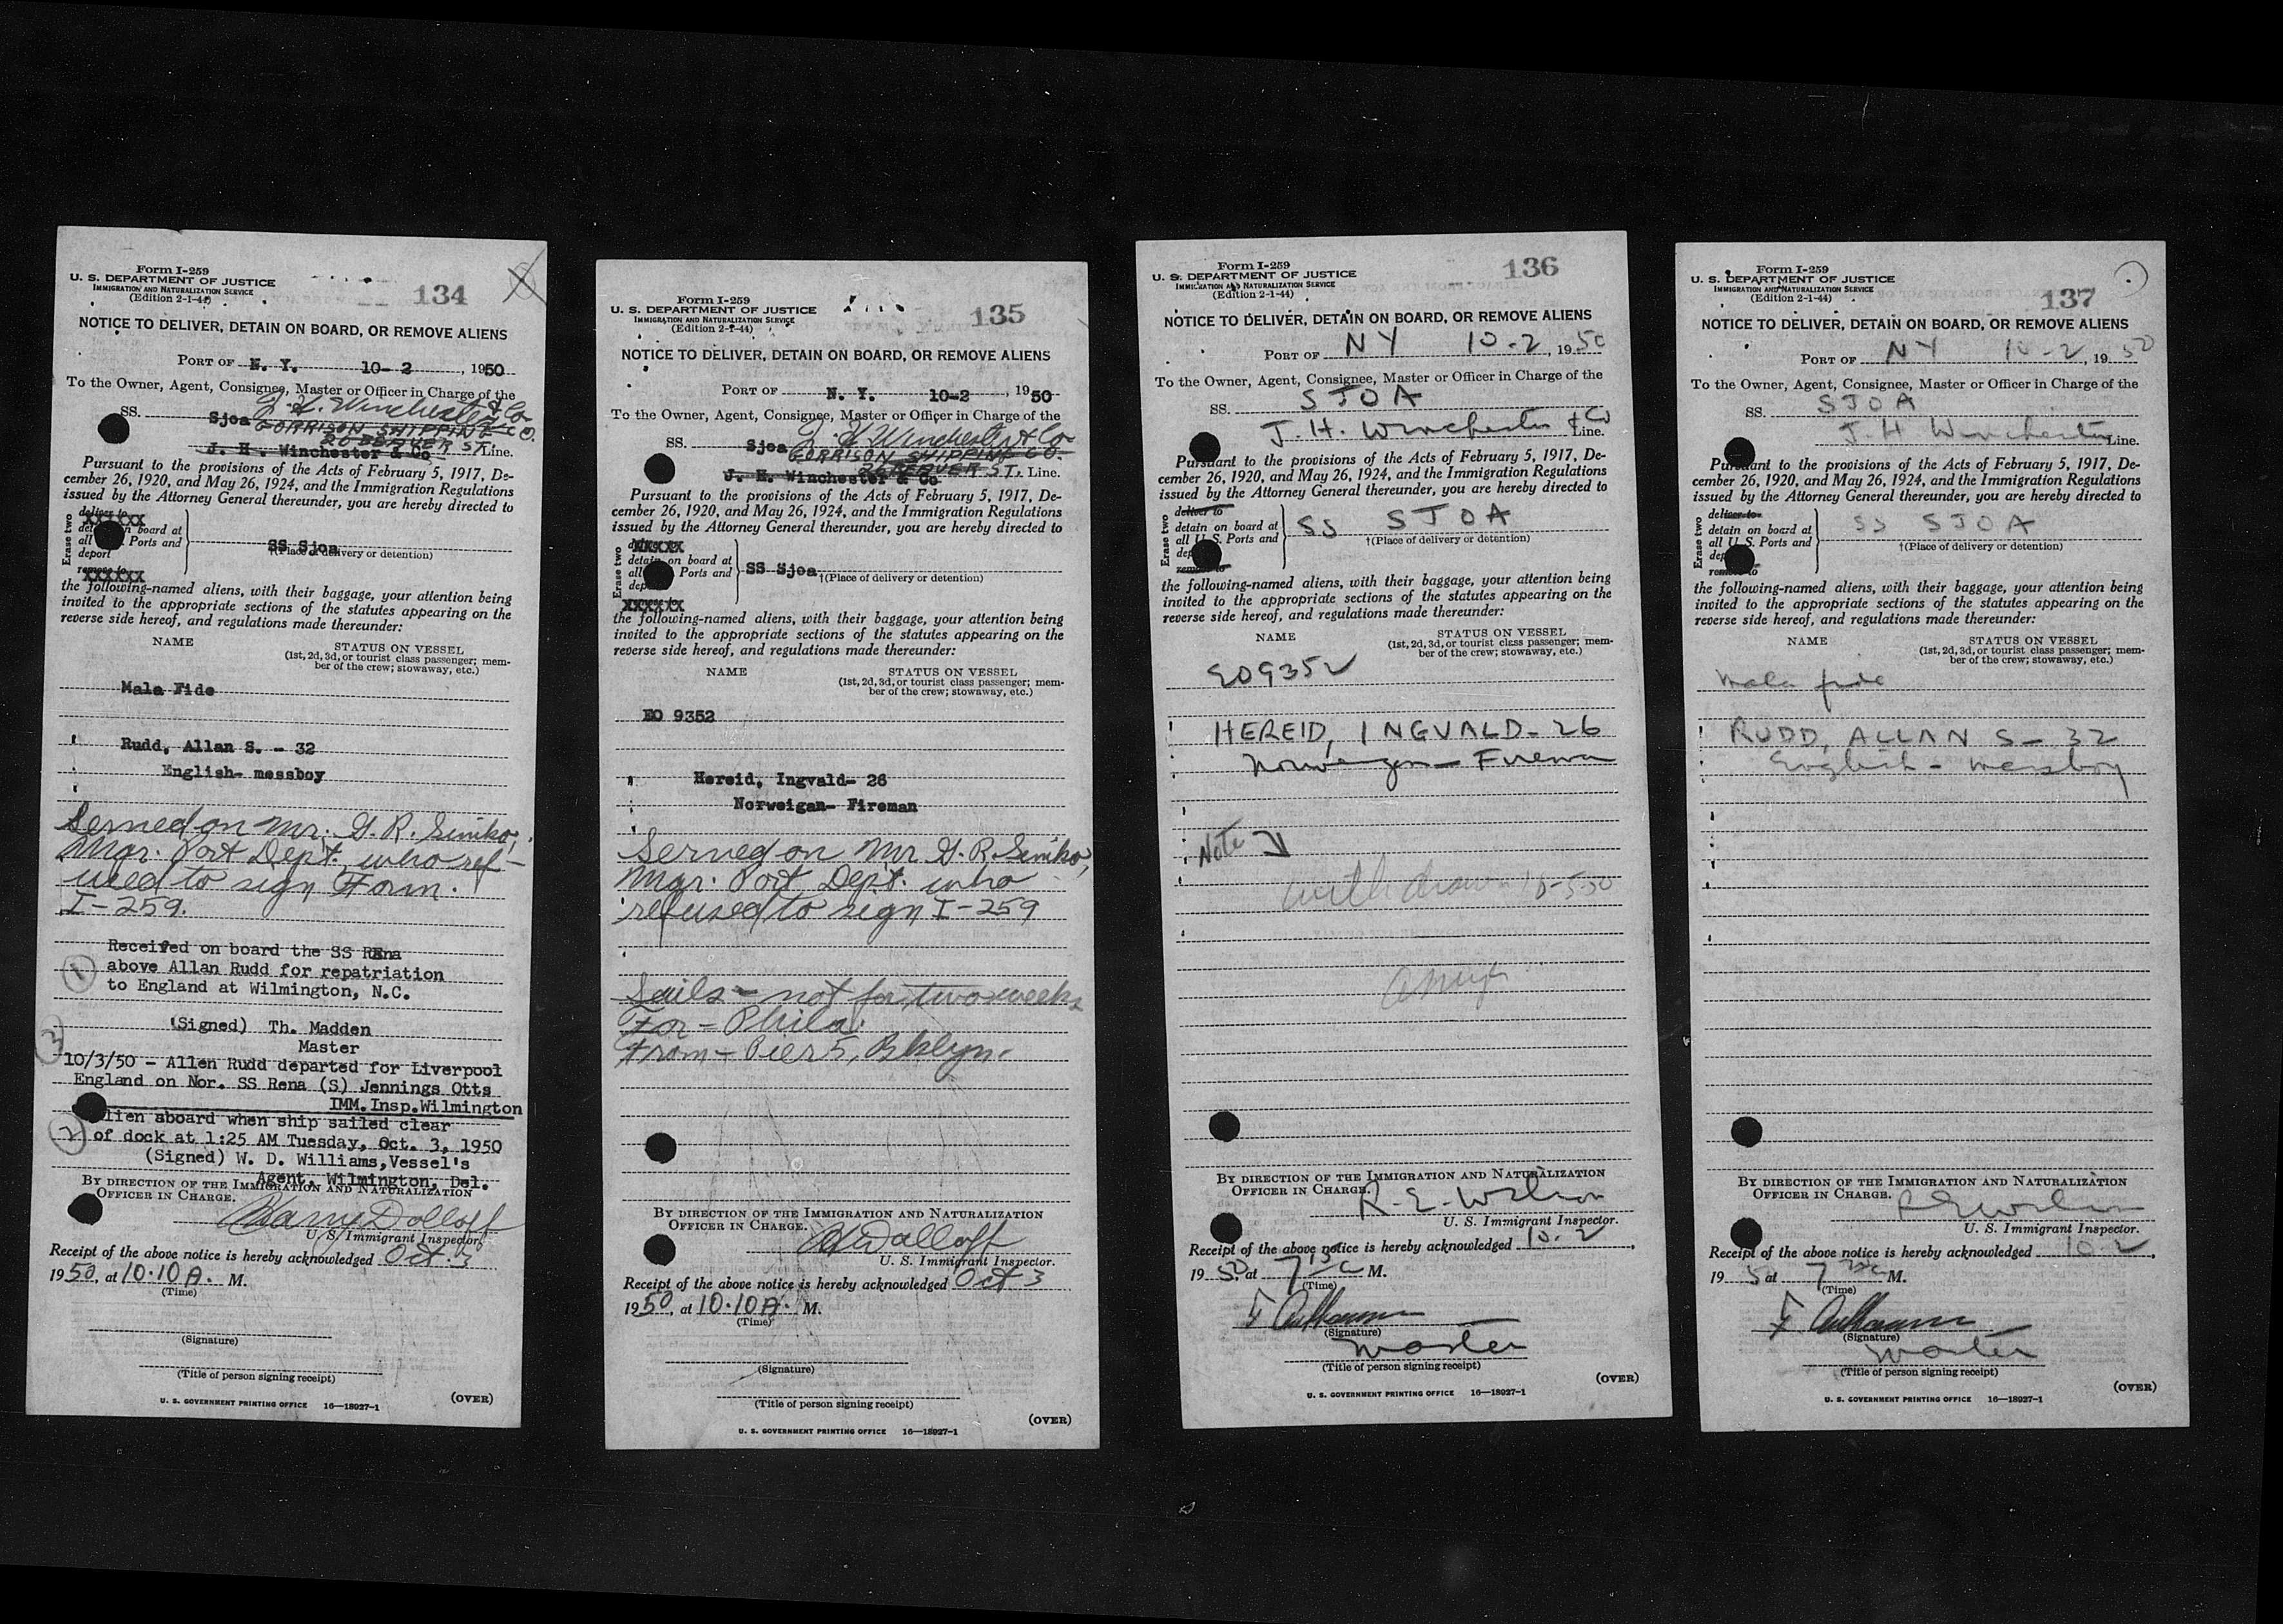 Form I-259
U. S. DEPARTMENT OF JUSTICE
IMMIGRATION AND NATURALIZATION SERVICE
(Edition 2-1-44)
134
NOTICE TO DELIVER, DETAIN ON BOARD, OR REMOVE ALIENS
PORT OF N. Y. 10-2, 1950
To the Owner, Agent, Consignee, Master or Officer in Charge of the
J. H. Winchester & Co
SS. Sjoa GORRISON SHIPPING CO.
26 BEAVER ST.
J. H. Winchester & Co Line.
Pursuant to the provisions of the Acts of February 5, 1917, De-
cember 26, 1920, and May 26, 1924, and the Immigration Regulations
issued by the Attorney General thereunder, you are hereby directed to
Erase two
deliver to
on board at
all Ports and
deport
remove to
SS Sjoa
†(Place of delivery or detention)
the following-named aliens, with their baggage, your attention being
invited to the appropriate sections of the statutes appearing on the
reverse side hereof, and regulations made thereunder:
NAME STATUS ON VESSEL
(1st, 2d, 3d, or tourist class passenger; mem-
ber of the crew; stowaway, etc.)
Mala Fide
Rudd, Allan S. - 32
English- messboy
Served on Mr. G. R. Simko,
Mgr. Port Dept. who ref-
used to sign Form.
I-259.
Received on board the SS REna
(1) above Allan Rudd for repatriation
to England at Wilmington, N.C.
(Signed) Th. Madden
Master
(3)
10/3/50 - Allen Rudd departed for Liverpool
England on Nor. SS Rena (S) Jennings Otts
IMM.Insp.Wilmington
lien aboard when ship sailed clear
(2) of dock at 1:25 AM Tuesday, Oct. 3, 1950
(Signed) W. D. Williams,Vessel's
Agent, Wilmington, Del.
BY DIRECTION OF THE IMMIGRATION AND NATURALIZATION
OFFICER IN CHARGE.
Harry Dolloff
U. S. Immigrant Inspector.
Receipt of the above notice is hereby acknowledged Oct 3
1950, at 10.10 A. M.
(Time)
(Signature)
(Title of person signing receipt)
(OVER)
U. S. GOVERNMENT PRINTING OFFICE 16—18927-1
Form I-259
U. S. DEPARTMENT OF JUSTICE
IMMIGRATION AND NATURALIZATION SERVICE
(Edition 2-1-44)
135
NOTICE TO DELIVER, DETAIN ON BOARD, OR REMOVE ALIENS
PORT OF N. Y. 10-2, 1950
To the Owner, Agent, Consignee, Master or Officer in Charge of the
J. H Winchester & Co
SS. Sjoa GORRISON SHIPPING CO.
26 BEAVER ST.
J. H. Winchester & Co Line.
Pursuant to the provisions of the Acts of February 5, 1917, De-
cember 26, 1920, and May 26, 1924, and the Immigration Regulations
issued by the Attorney General thereunder, you are hereby directed to
Erase two
detain on board at
all Ports and
SS Sjoa
†(Place of delivery or detention)
the following-named aliens, with their baggage, your attention being
invited to the appropriate sections of the statutes appearing on the
reverse side hereof, and regulations made thereunder:
NAME STATUS ON VESSEL
(1st, 2d, 3d, or tourist class passenger; mem-
ber of the crew; stowaway, etc.)
EO 9352
Hereid, Ingvald- 26
Norweigan- Fireman
Served on Mr G. R. Simko,
Mgr. Port Dept. who
refused to sign I-259
Sails - not for two weeks
For - Phila.
From - Pier 5, Bklyn.
BY DIRECTION OF THE IMMIGRATION AND NATURALIZATION
OFFICER IN CHARGE.
H Dolloff
U. S. Immigrant Inspector.
Receipt of the above notice is hereby acknowledged Oct 3
1950, at 10.10 A. M.
(Time)
(Signature)
(Title of person signing receipt)
(OVER)
U. S. GOVERNMENT PRINTING OFFICE 16—18927-1
Form I-259
U. S. DEPARTMENT OF JUSTICE
IMMIGRATION AND NATURALIZATION SERVICE
(Edition 2-1-44)
136
NOTICE TO DELIVER, DETAIN ON BOARD, OR REMOVE ALIENS
PORT OF NY 10-2, 1950
To the Owner, Agent, Consignee, Master or Officer in Charge of the
SS. SJOA
J. H. Winchester & Co Line.
Pursuant to the provisions of the Acts of February 5, 1917, De-
cember 26, 1920, and May 26, 1924, and the Immigration Regulations
issued by the Attorney General thereunder, you are hereby directed to
Erase two
deliver to
detain on board at
all U. S. Ports and
remove to
SS SJOA
†(Place of delivery or detention)
the following-named aliens, with their baggage, your attention being
invited to the appropriate sections of the statutes appearing on the
reverse side hereof, and regulations made thereunder:
NAME STATUS ON VESSEL
(1st, 2d, 3d, or tourist class passenger; mem-
ber of the crew; stowaway, etc.)
EO9352
HEREID, INGVALD- 26
Norwegian - Fireman
Note
withdrawn 10-5-50
BY DIRECTION OF THE IMMIGRATION AND NATURALIZATION
OFFICER IN CHARGE.
R. E. Wilson
U. S. Immigrant Inspector.
Receipt of the above notice is hereby acknowledged 10-2,
1950, at 7 M.
(Time)
(Signature)
Master
(Title of person signing receipt)
(OVER)
U. S. GOVERNMENT PRINTING OFFICE 16—18927-1
Form I-259
U. S. DEPARTMENT OF JUSTICE
IMMIGRATION AND NATURALIZATION SERVICE
(Edition 2-1-44)
137
NOTICE TO DELIVER, DETAIN ON BOARD, OR REMOVE ALIENS
PORT OF NY 10-2, 1950
To the Owner, Agent, Consignee, Master or Officer in Charge of the
SS. SJOA
J. H Winchester Line.
Pursuant to the provisions of the Acts of February 5, 1917, De-
cember 26, 1920, and May 26, 1924, and the Immigration Regulations
issued by the Attorney General thereunder, you are hereby directed to
Erase two
deliver to
detain on board at
all U. S. Ports and
remove to
SS SJOA
†(Place of delivery or detention)
the following-named aliens, with their baggage, your attention being
invited to the appropriate sections of the statutes appearing on the
reverse side hereof, and regulations made thereunder:
NAME STATUS ON VESSEL
(1st, 2d, 3d, or tourist class passenger; mem-
ber of the crew; stowaway, etc.)
Mala fide
RUDD, ALLAN S- 32
English - messboy
BY DIRECTION OF THE IMMIGRATION AND NATURALIZATION
OFFICER IN CHARGE.
R E Wilson
U. S. Immigrant Inspector.
Receipt of the above notice is hereby acknowledged 10-2,
195 at 7 M.
(Time)
(Signature)
Master
(Title of person signing receipt)
(OVER)
U. S. GOVERNMENT PRINTING OFFICE 16—18927-1